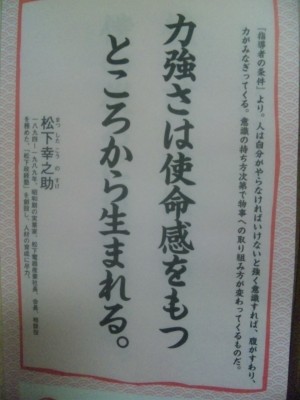 『指導者の条件』より。人は自分がやらなければいけないと強く意識すれば、腹がすわり、
力がみなぎってくる。意識の持ち方次第で物事への取り組み方が変わってくるものだ。
力強さは使命感をもつ
ところから生まれる。
まつした こうのすけ
松下幸之助
一八九四〜一九八九。昭和期の実業家。松下電器産業社長、会長、相談役
を務めた。「松下政経塾」を開設し、人材の育成に尽力。